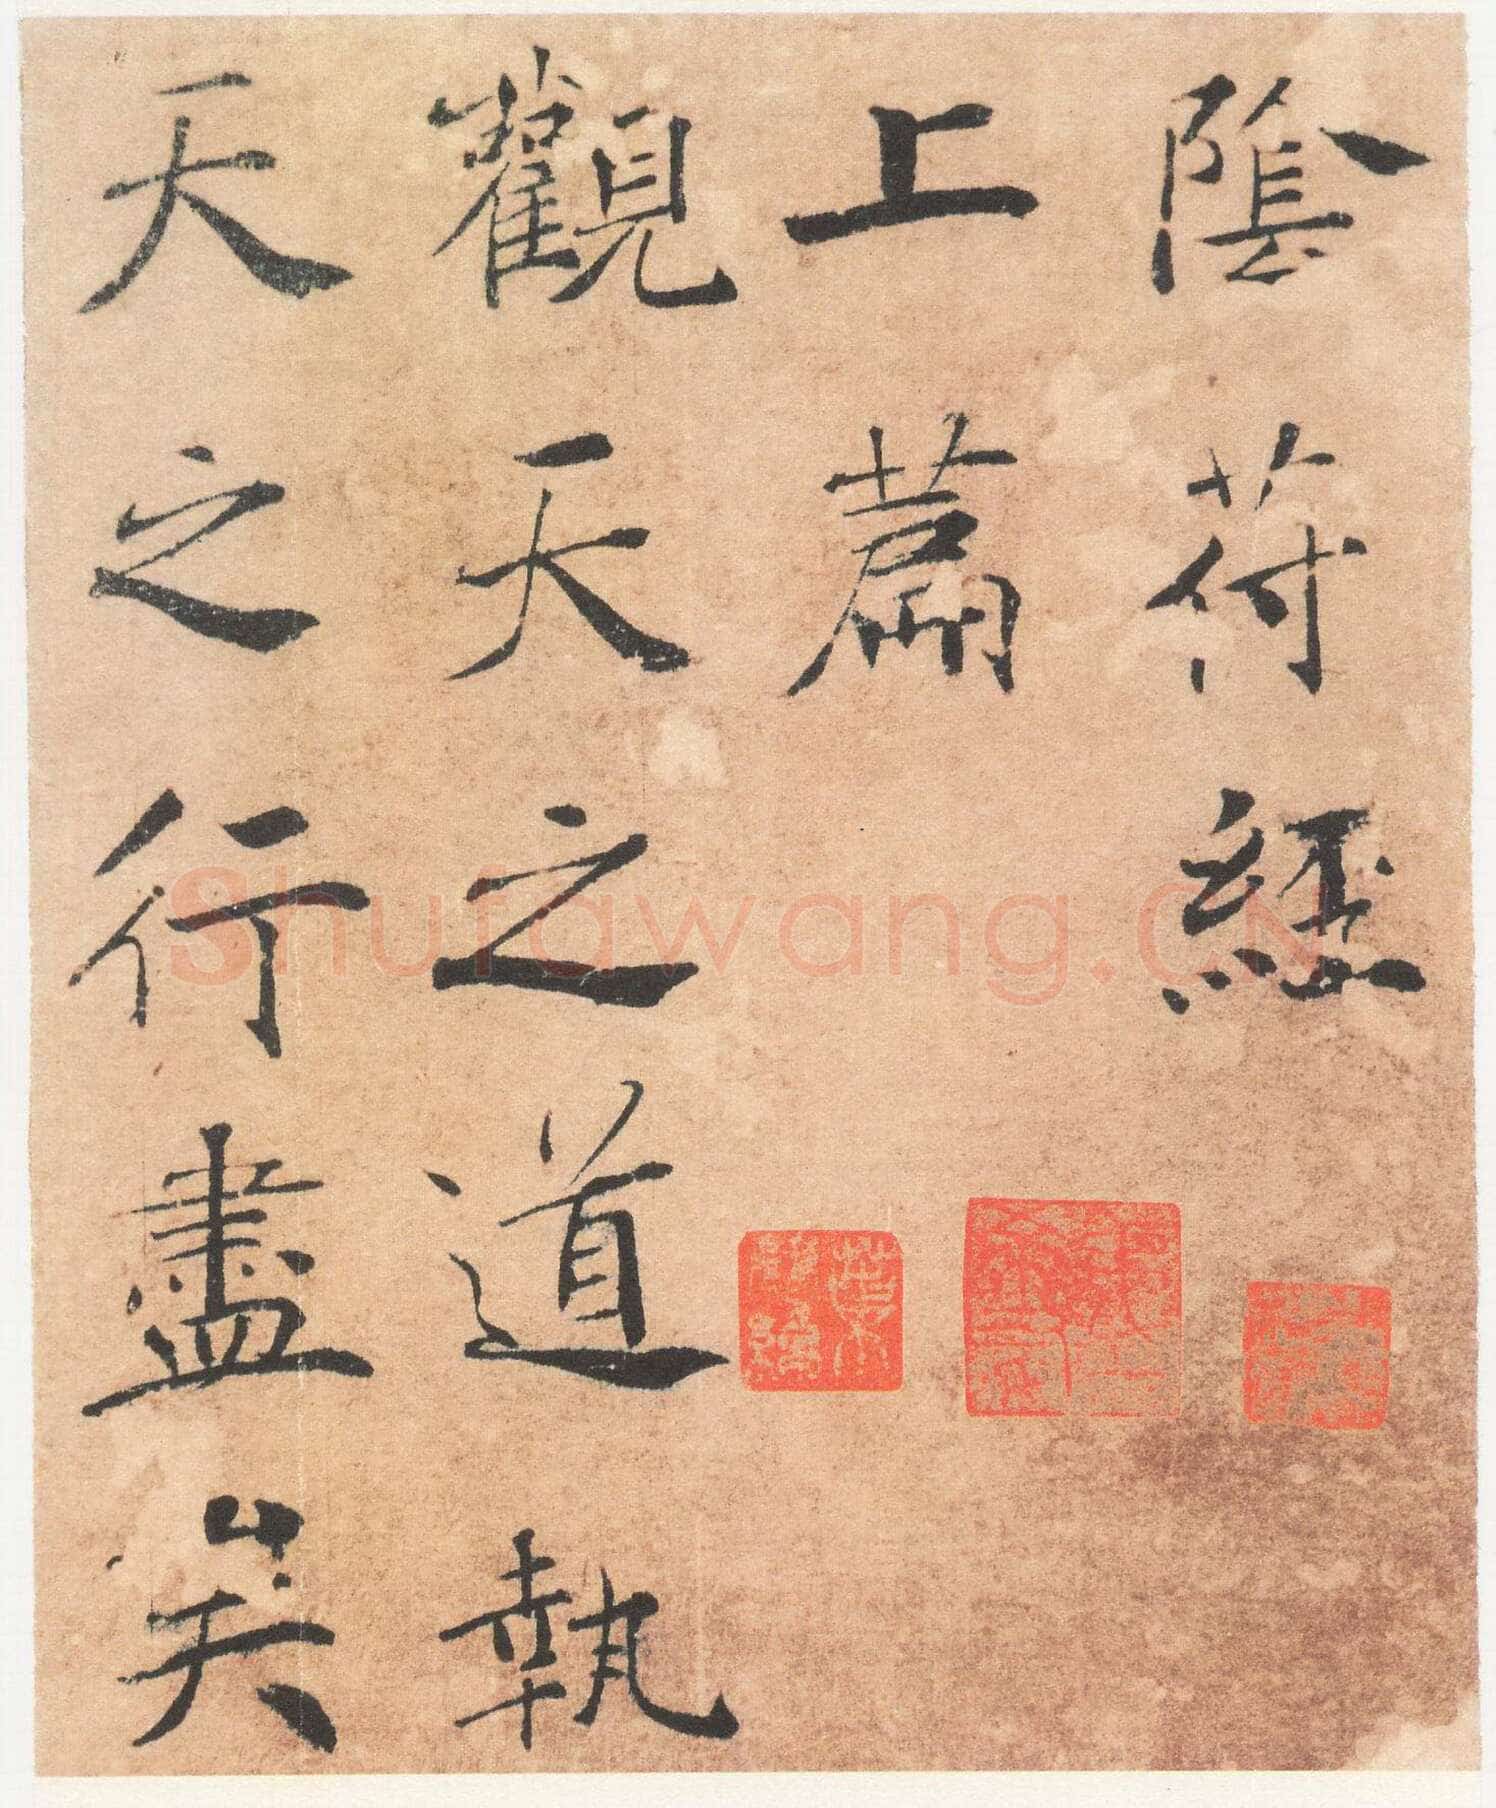 陰符經
上篇
觀天之道執
天之行盡矣
Shufawang.CN